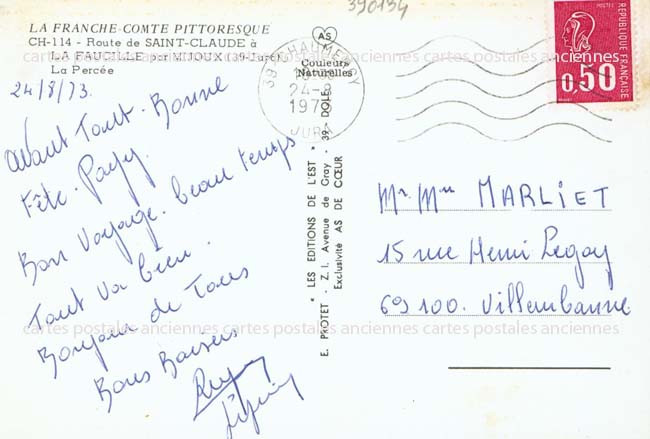 390134
LA FRANCHE-COMTE PITTORESQUE
CH-114 - Route de SAINT-CLAUDE à
LA FAUCILLE par MIJOUX (39-Jura)
La Percée
AS
Couleurs
Naturelles
24-8
JURA
RÉPUBLIQUE FRANÇAISE
POSTES
0,50
24/8/73.
Avant Tout. Bonne
Fête. Papy.
Bon Voyage. beau temps
Tout va bien.
Bonjour de Tous
Bons Baisers
* LES EDITIONS DE L'EST *
E. PROTET - Z.I. Avenue de Gray - 39- DOLE
Exclusivité AS DE CŒUR
Mr. Mme MARLIET
15 rue Henri Legay
69100. Villeurbanne
cartes postales anciennes cartes postales anciennes cartes postales anciennes